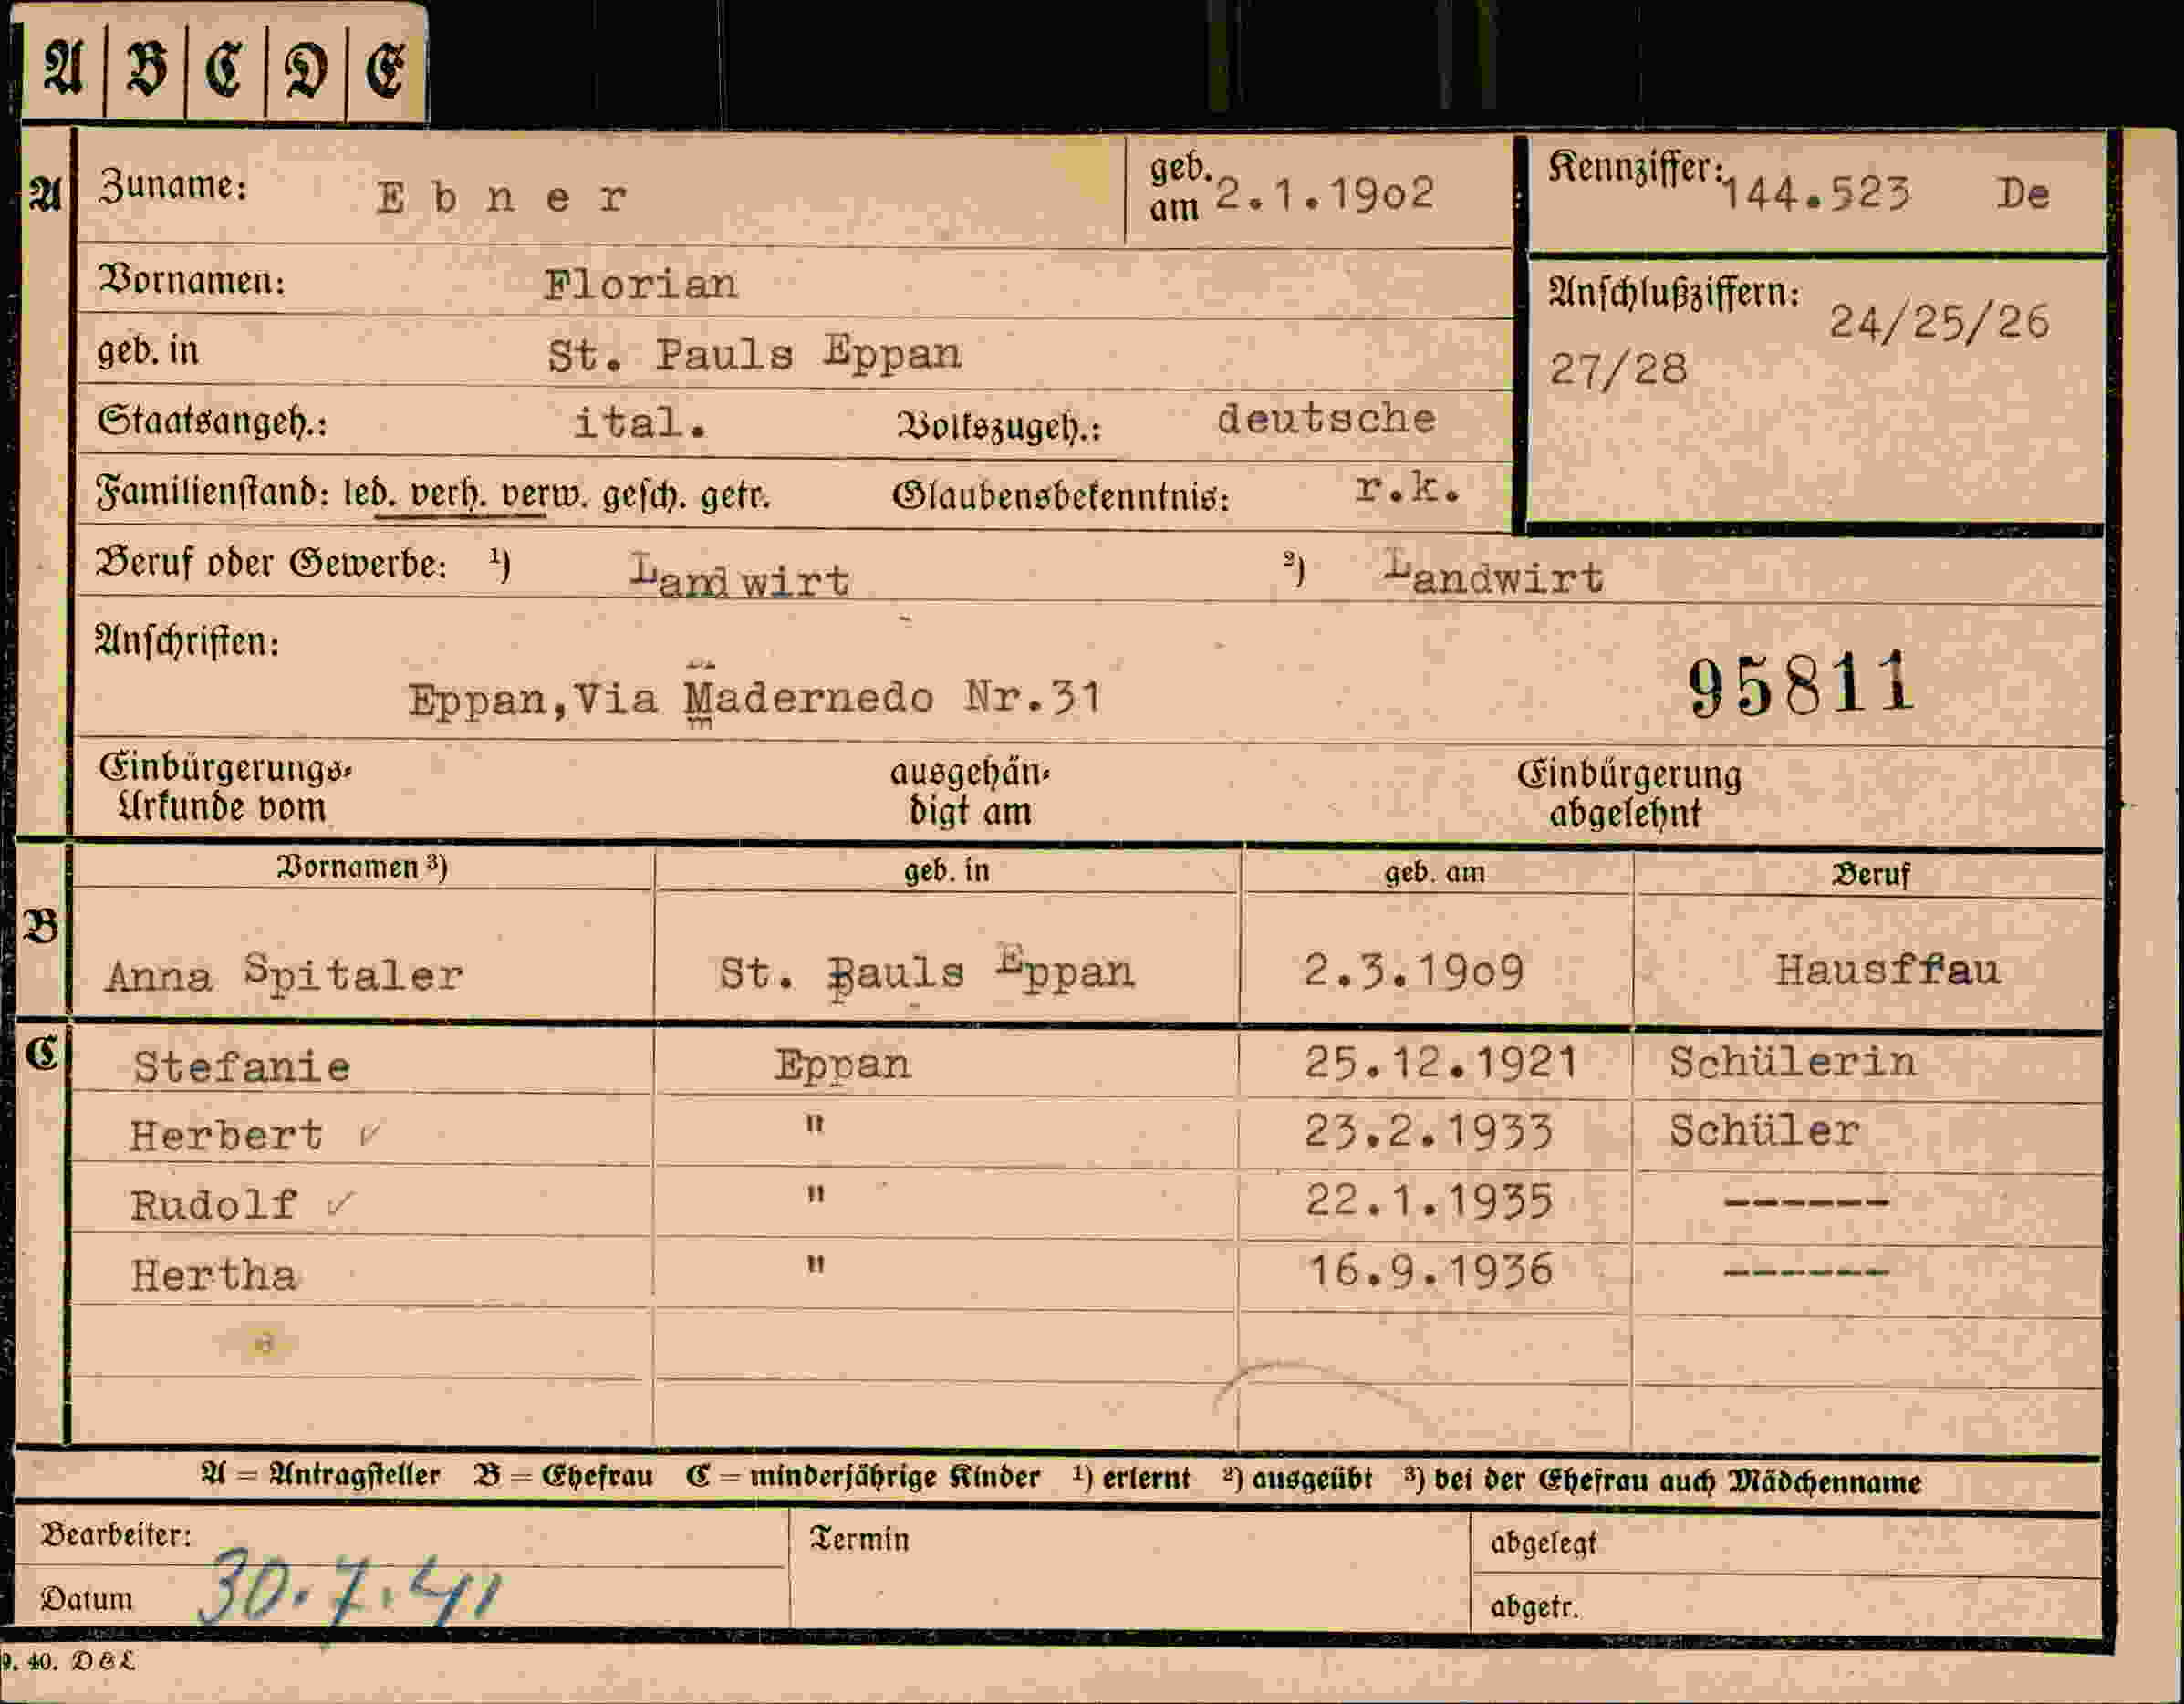 A B C D E
A Zuname: Ebner geb. am 2.1.1902 Kennziffer: 144.523 De
Vornamen: Florian
Anschlußziffern: 24/25/26
27/28
geb. in St. Pauls Eppan
Staatsangeh.: ital. Volkszugeh.: deutsche
Familienstand: led. verh. verw. gesch. getr. Glaubensbekenntnis: r.k.
Beruf oder Gewerbe: ¹) Landwirt ²) Landwirt
Anschriften:
Eppan,Via Madernedo Nr.31 95811
Einbürgerungs- ausgehän- Einbürgerung
Urkunde vom digt am abgelehnt
Vornamen ³) geb. in geb. am Beruf
B
Anna Spitaler St. Pauls Eppan 2.3.1909 Hausffau
C Stefanie Eppan 25.12.1921 Schülerin
Herbert ✓ " 23.2.1933 Schüler
Rudolf ✓ " 22.1.1935 ------
Hertha " 16.9.1936 ------
A = Antragsteller B = Ehefrau C = minderjährige Kinder ¹) erlernt ²) ausgeübt ³) bei der Ehefrau auch Mädchenname
Bearbeiter: Termin abgelegt
Datum 30.7.41 abgetr.
9. 40. D&L